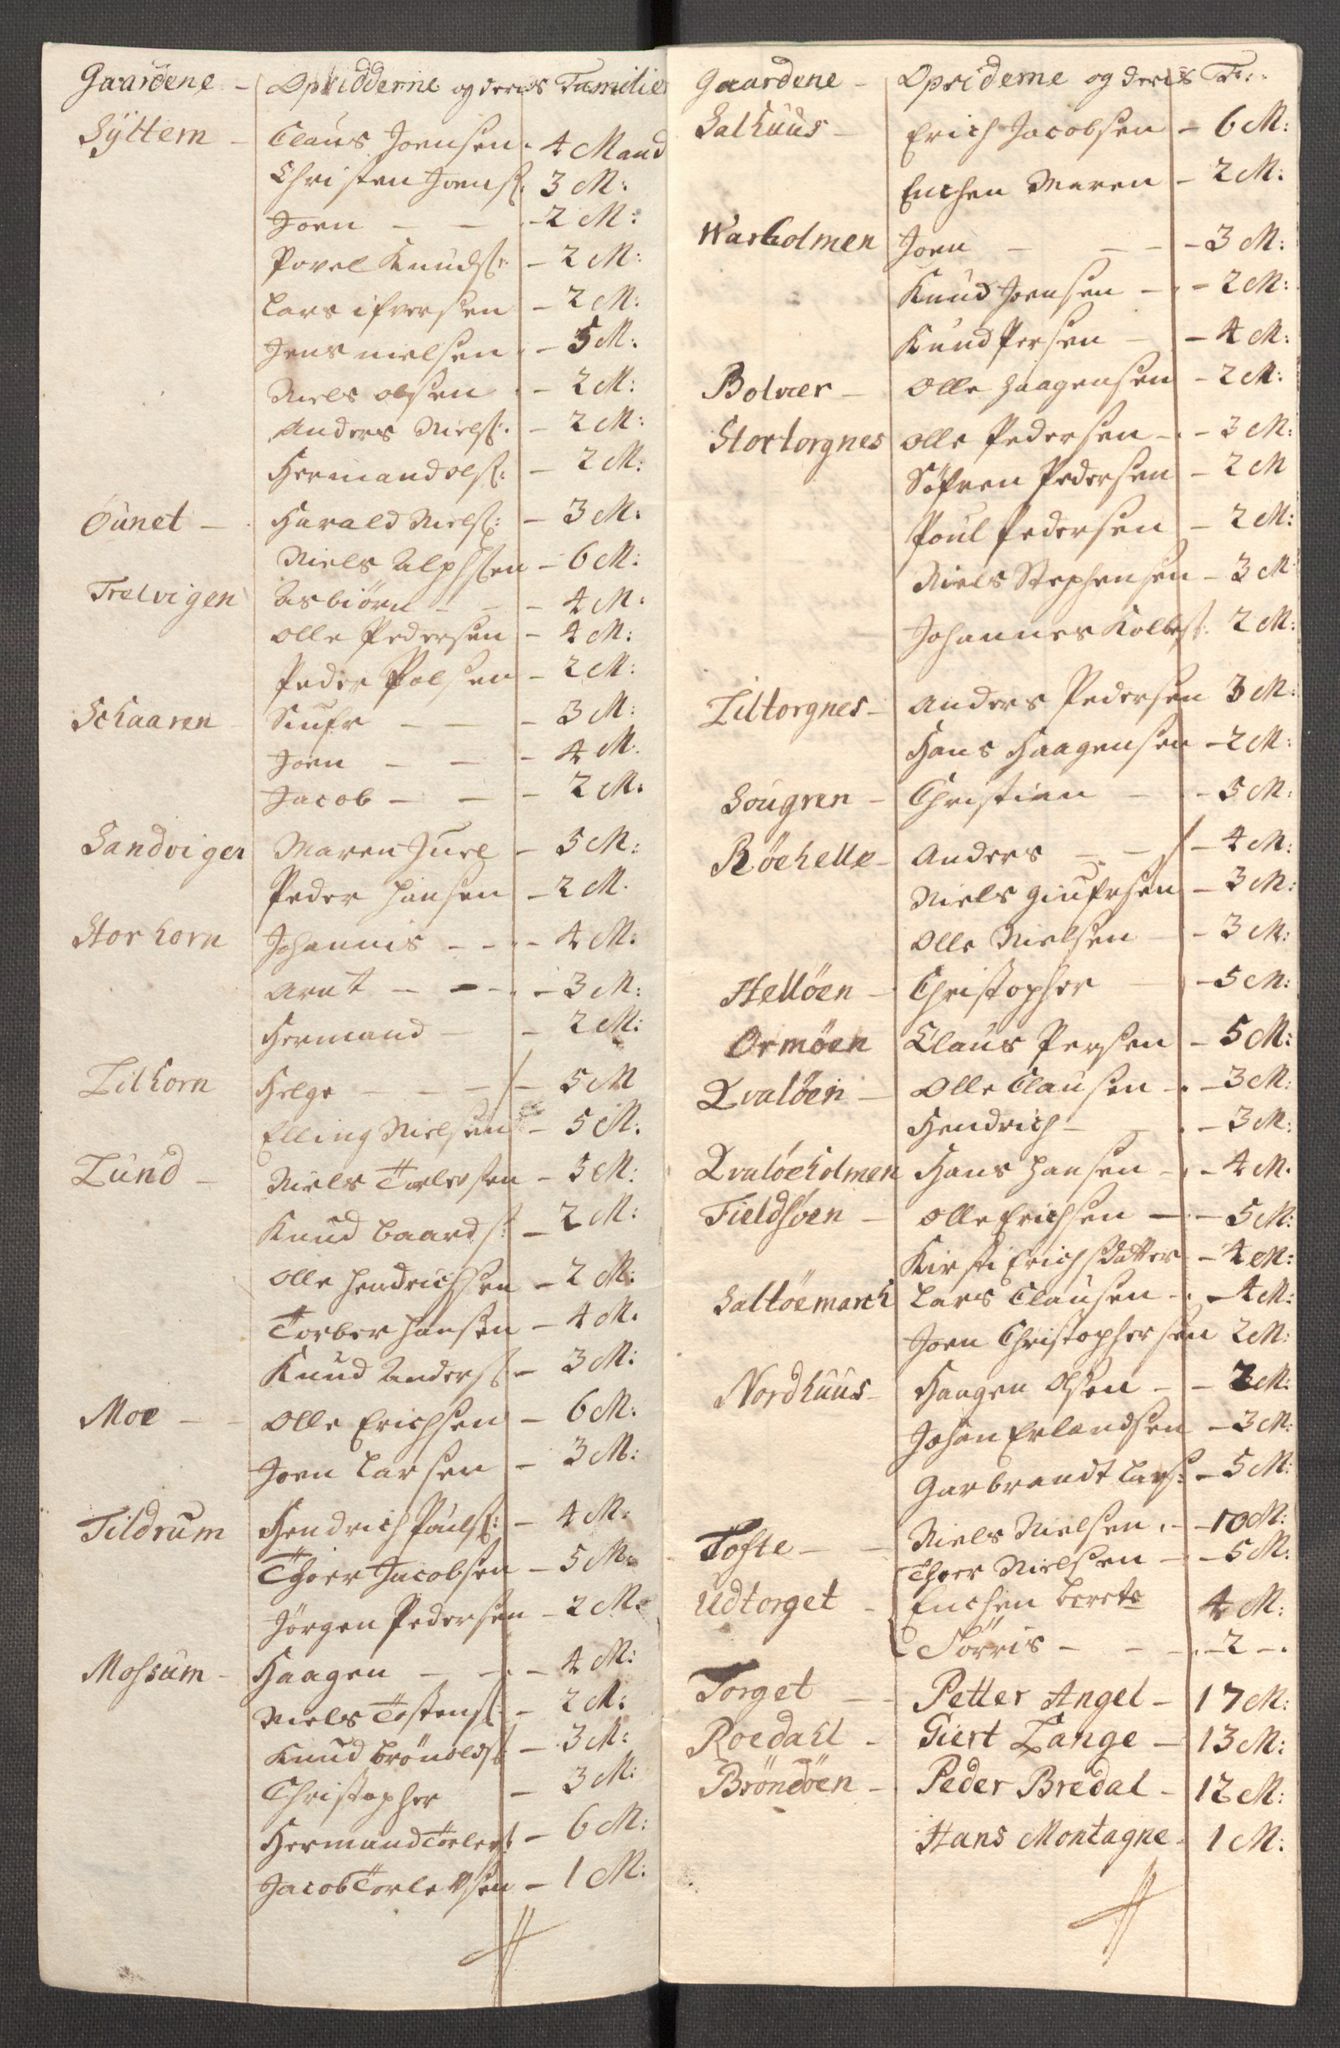 Gaardene - Opsidderne og deris Familier
Syttern - Claus Joensen - 4 Mand
Christen Joens: 3 M:
Joen - - - 2 M:
Povel Knuds: - 2 M:
Lars ifversen - 2 M:
Jens nielsen - 5 M:
Niels olsen - 2 M:
Anders Niels: - 2 M:
Hermand ols: - 2 M:
Öunet - Harald Niels: - 3 M:
Niels Alphsen - 6 M:
Trelvigen Asbiörn - - - 4 M:
Olle Pedersen - 4 M:
Peder Polsen - 2 M:
Schaaren Siufr - - - 3 M:
Joen - - - 4 M.
Jacob - - - 2 M:
Sandvigen Maren Juel - 5 M:
Peder Hansen - 2 M.
Storhorn Johannis - - - 4 M:
Arnt - - - 3 M:
Hermand - - 2 M:
Lilhorn Helge - - - 5 M
Elling Nielsen - 5 M.
Lund - Niels Torlevsen - 3 M:
Knud Baards: - 2 M:
Olle Hendrichsen - 2 M:
Torber Hansen - 4 M.
Knud Anders: - 3 M:
Moe - - Olle Erichsen - 6 M:
Joen Larsen - 3 M:
Tildrum Hendrich Pouls: - 4 M:
Thoer Jacobsen - 5 M:
Jörgen Pedersen - 2 M:
Mossum - Haagen - - - 4 M:
Niels Tostens: - 2 M:
Knud Brönolds: - 3 M:
Christopher - 3 M:
Hermand Torlevs: - 6 M:
Jacob Torlevsen - 1 M:
Gaardene - Opsiderne og deris F::
Salhuus - Erich Jacobsen - 6 M:
Enchen Maren - 2 M:
Warholmen Joen - - - 3 M:
Knud Joensen - - 2 M:
Knud Persen - - 4 M:
Bolvær - Olle Haagensen - 2 M:
Stortorgnes Olle Pedersen - - 3 M:
Söfren Pedersen - 2 M
Poul Pedersen - 2 M:
Niels Stephensen - 3 M
Johannes Kolbes: 2 M:
Liltorgnes - Anders Pedersen 3 M:
Hans Haagensen - 2 M:
Sougren - Christian - - 5 M.
Röehelle - Anders - - - 4 M:
Niels Giufrsen - 3 M:
Olle Nielsen - - 3 M:
Hellöen - Christopher - - 5 M:
Ormöen Claus Persen - 5 M:
Qvalöen - Olle Clausen - - 3 M:
Hendrich - - - 3 M:
Qvalöeholmen Hans Hansen - - 4 M.
Fieldsöen - Olle Erichsen - - 5 M:
Kirsti Erichsdatter - 4 M:
Saltöemarch Lars Clausen - - 4 M:
Joen Christophersen 2 M:
Nordhuus - Haagen Olsen - - 2 M:
Johan Erlandsen - 3 M:
Garbrandt Lars: - 5 M:
Tofte - - Niels Nielsen - - 10 M:
Thoer Nielsen - - 5 M:
Udtorget - Enchen Berete 4 M:
Sörris - - - 2 -
Torget - - Petter Angel - 17 M:
Roedahl - Giert Lange - 13 M:
Bröndöen - Peder Bredal - 12 M:
Hans Montagne - 1 M: